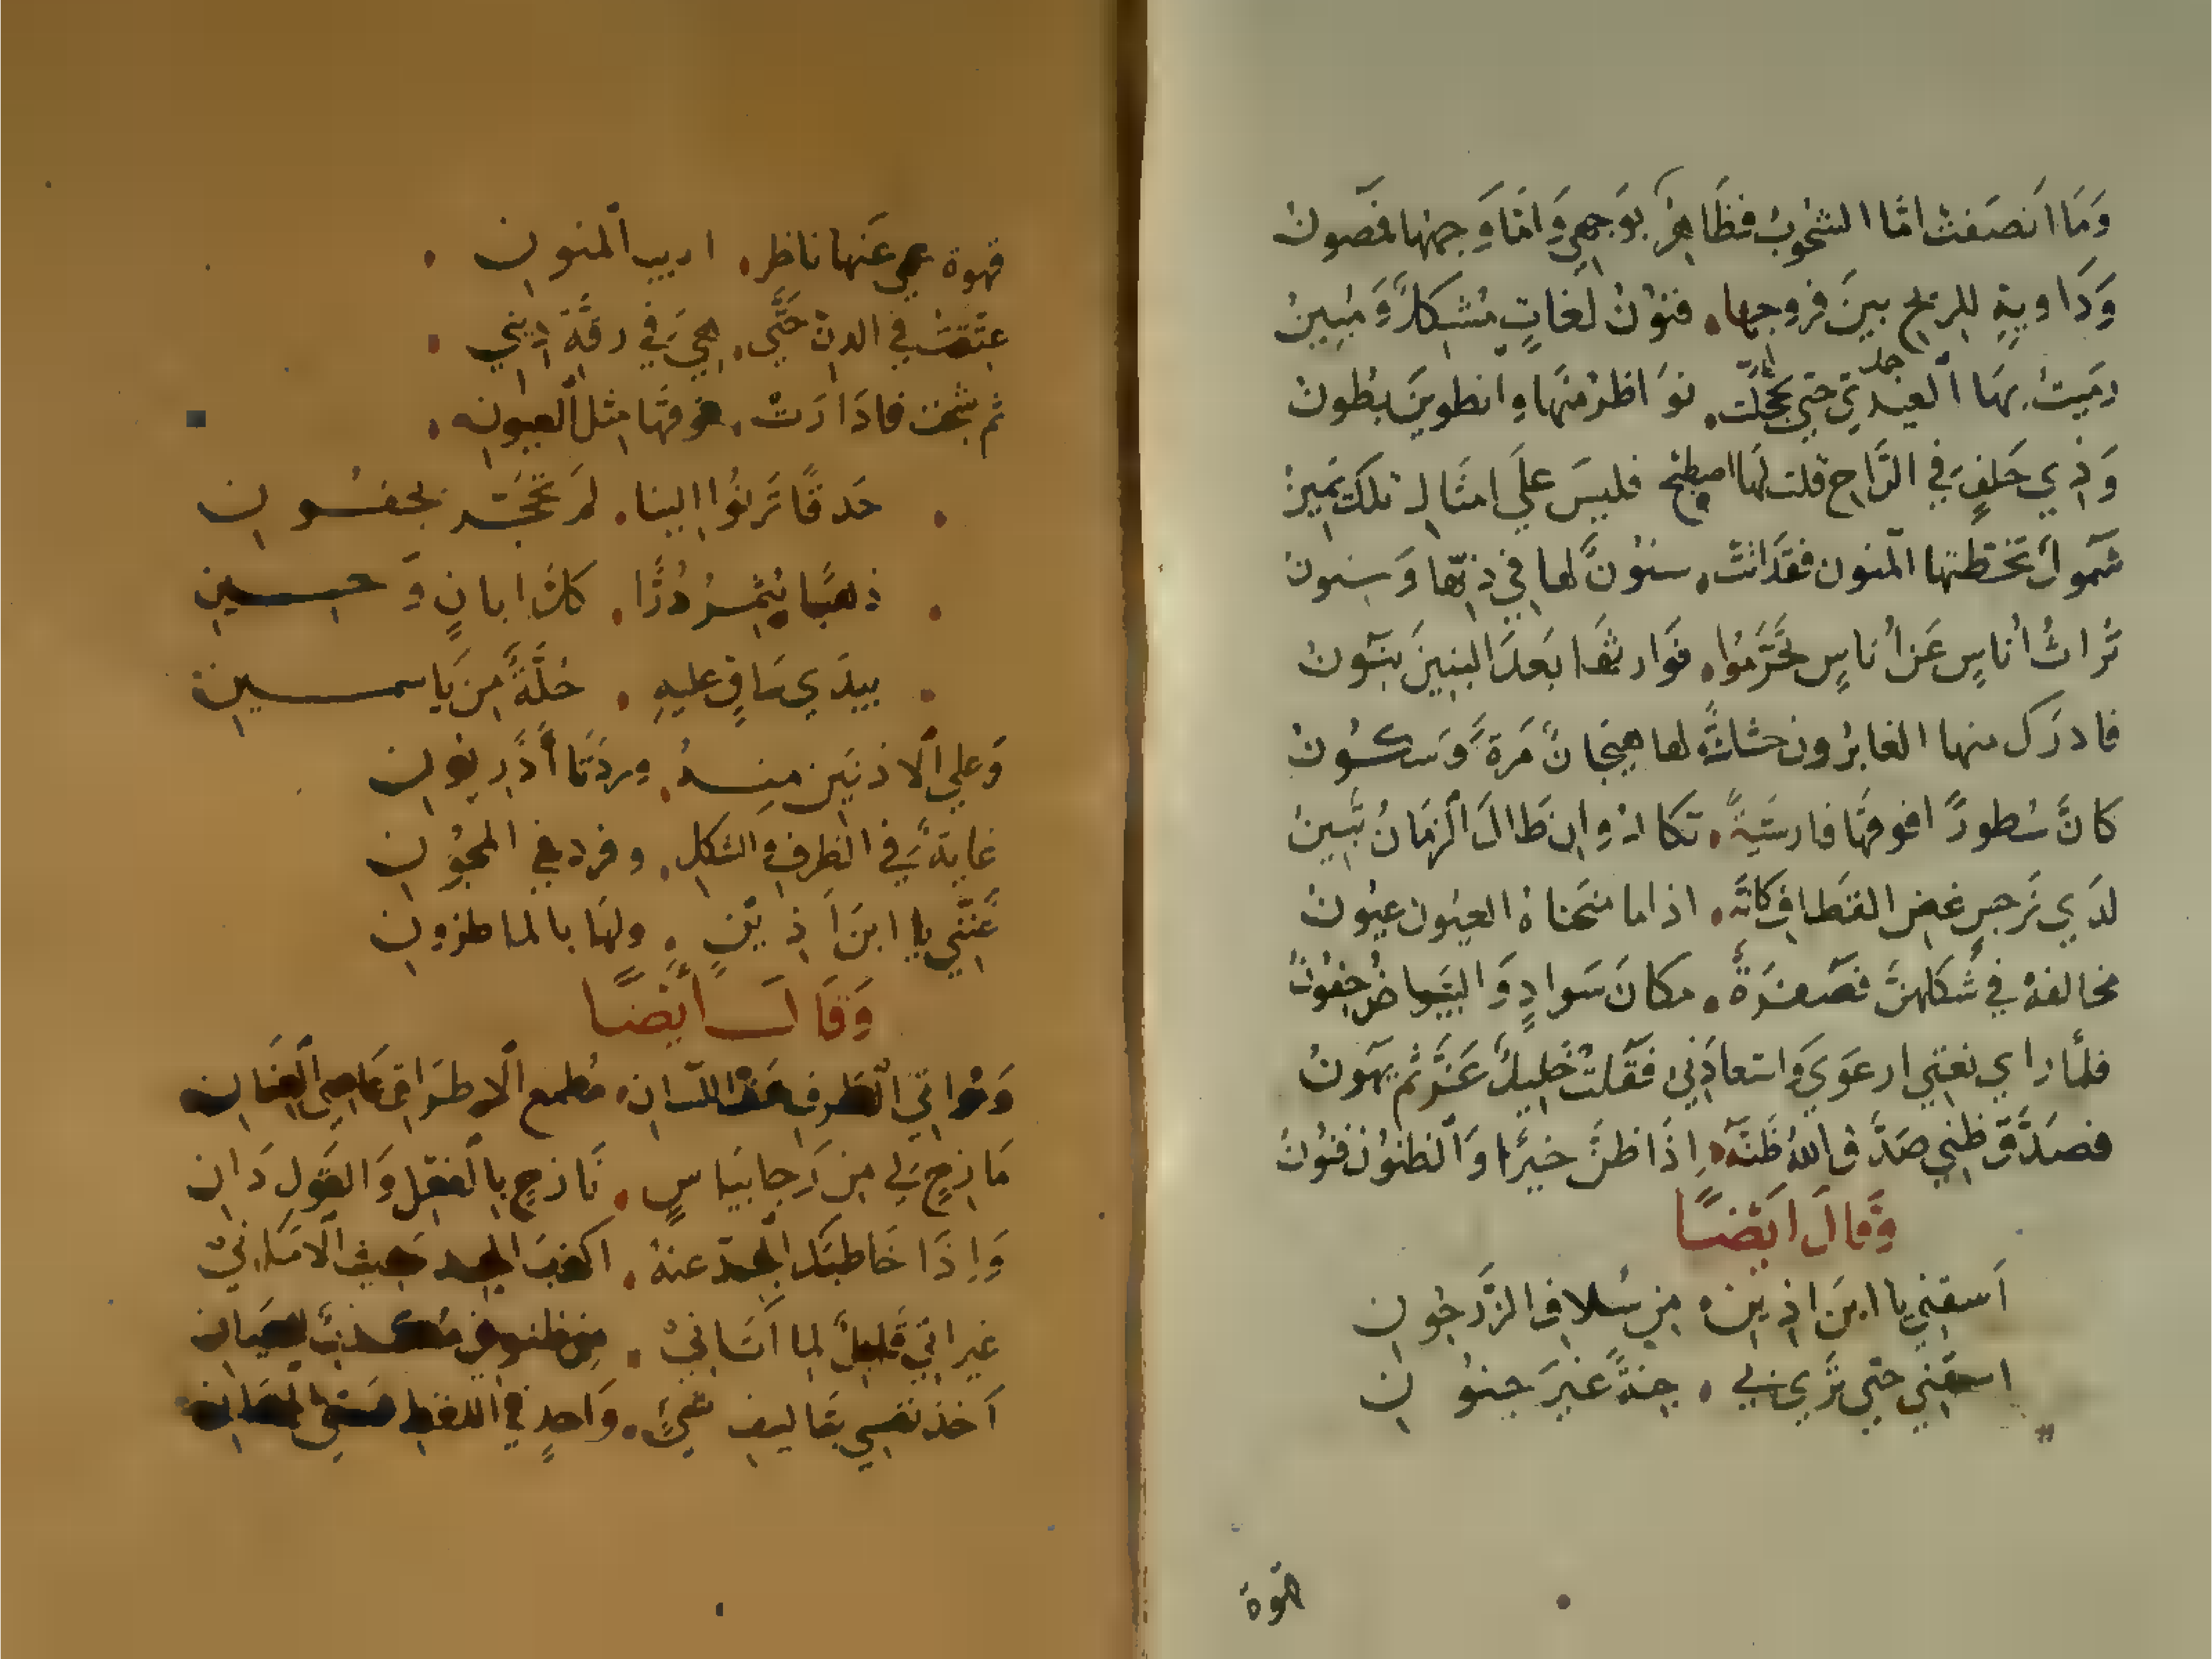 وَمَا اَنصَفتْ امَّا الشحُوبُ فظَاهِرٌ بوَجهِي وَامَّا وَجهُهَا فمَصونُ
وَدَاويةٍ للريح بينَ فروجها. فنوُنُ لُغاتٍ مُشكلٌ وَمُبِينُ
رميتُ بهَا العيديّ حتى تحجّلت. نوَاظرُ منهَا وانطوينَ بطونُ
وَذِي حَلفٍ في الرَّاح قلت لهَا اصطبح فليسَ علَي امثَال تلكَ يَمينُ
شمَول تخطتها المنون فقد انت. سنوُنٌ لها في دنّها وَسنون
تُراثُ اُناسٍ عَن اُناسٍ تخَرَّموُا. توَارثها بَعدَ البنينَ بنَون
فادرَك منها الغابرُون حشاشةً لها هيَجَانٌ مَرةً وَسكُونُ
كانَّ سُطورًا فوقهَا فارسَيةً. تكادُ وان طَالَ الزمَانُ تَبينُ
لدَي نَرجسٍ غض القطَاف كانّه. اذا ما منحناهُ العيُون عيُون
مخالفة في شَكلهنَّ فصَفرَةٌ. مكانَ سَوادٍ وَالبيَاض جفوُنُ
فلمّا راي نعتي ارعَوَي وَاستعادَني فقَلتُ خليلٌ عَزَّ ثم يَهَونُ
فصَدَّق ظني صَدَّق الله ظنّهُ. اِذَا ظنَّ خيرًا وَالظنوُن فنوُن
وَقالَ ايَضًا
اَسقنِي يا ابنَ اذين. من سُلاف الزَّرجُون
اسقني حتي تَري بي. جِنةً غيرَ جنوُن
قهوة
قهوة عمي عَنها ناظر. اريب المنون.
عتقت في الدن حتَّي. هيَ في رقَّة ديني.
ثم شجت فادَارَت. فوقهَا مثل العيون.
حَدقًا تَرنوُا الينا. لم تحَجّر بجفُون
ذهبًا يُثمرُ دُرًّا. كلّ ابانٍ وَحين
بيدَي سَاقٍ عليهِ. حُلَّةٌ من يَاسمين
وَعلي الاذنيَن منهُ. وردَتَا اَذَريُون
غايةً في الظرف والشكل. وفرد في المجُون
غَنّني يا ابنَ اَذيَن. ولهَا بالماطرُون
وَقَالَ أيَضًا
مَازحٍ لي من رَجا بيَاسٍ. نَازحٍ بالفعل وَالقَول دَان
وَاِذَا خَاطبَكَ الجد عنهُ. اكذب الجد حديث الامَاني
غير انّي قَايلٌ لما اَتاني. من ظنوني مُكذبٌ للعيان
آخذ نفسي بتَاليف شيءٍ. وَاحدٍ في اللفظ شتي المعاني